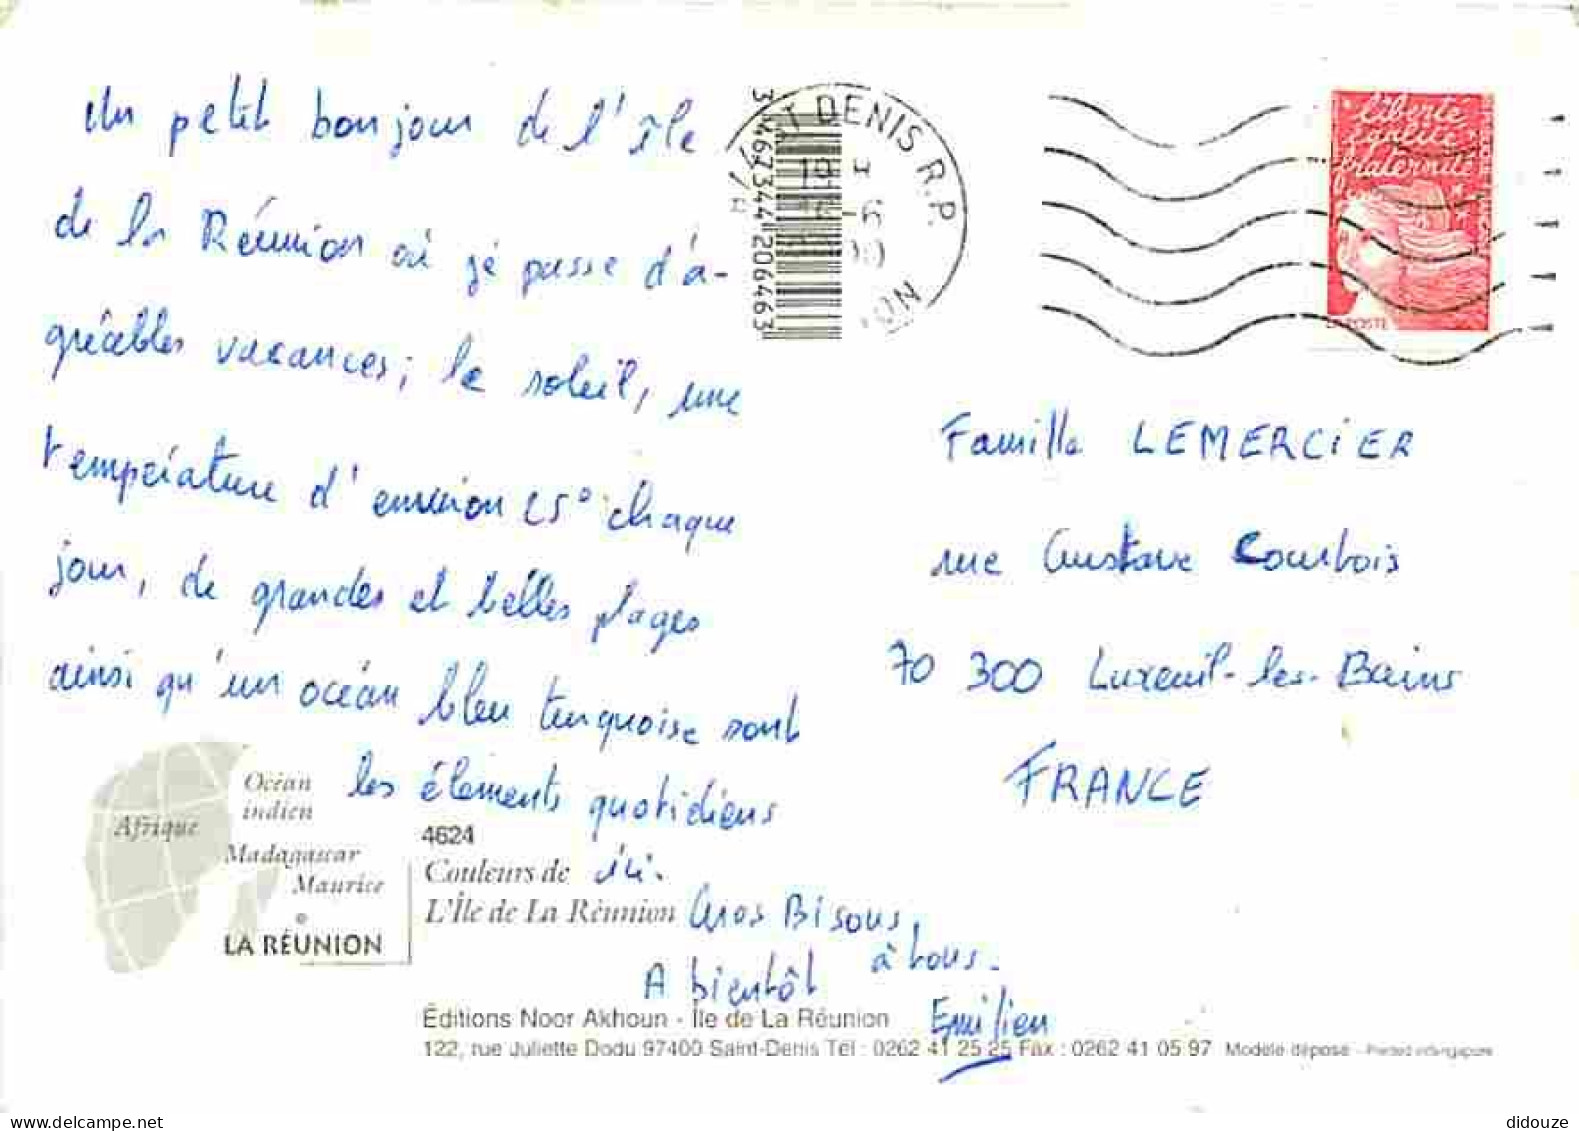 Un petit bonjour de l'île
de la Réunion où je passe d'a-
gréables vacances; le soleil, une
température d'environ 25° chaque
jour, de grandes et belles plages
ainsi qu'un océan bleu turquoise sont
les éléments quotidiens
ici.
Gros Bisous,
à tous.
A bientôt
Emilien
3 467344 206463
DENIS R.P.
Liberté
égalité
fraternité
LA POSTE
Famille LEMERCIER
rue Gustave Courtois
70 300 Luxeuil-les-Bains
FRANCE
Afrique
Océan
indien
Madagascar
Maurice
LA RÉUNION
4624
Couleurs de
L'Île de La Réunion
Éditions Noor Akhoun - Île de La Réunion
122, rue Juliette Dodu 97400 Saint-Denis Tél : 0262 41 25 25 Fax : 0262 41 05 97 Modèle déposé -
didouze